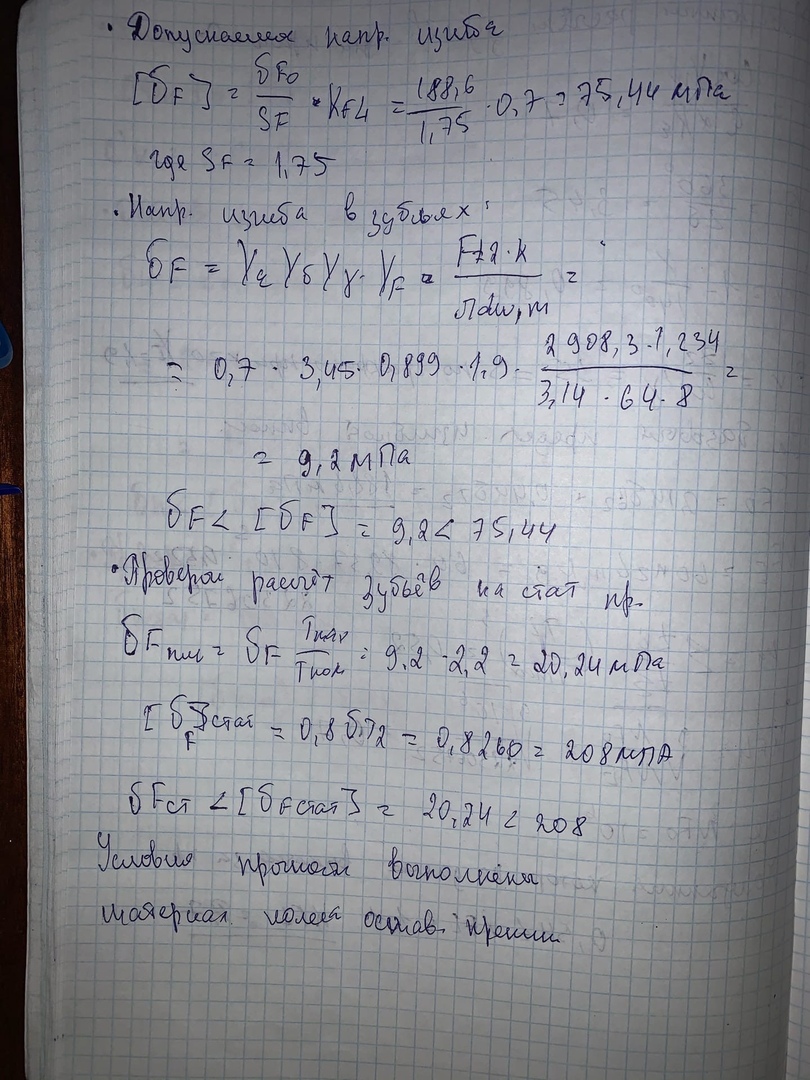 • Допускаемая напр. изгиба
[δF] = δFo/SF · KFL = 188,6/1,75 · 0,7 = 75,44 мПа
где SF = 1,75
• Напр. изгиба в зубьях:
δF = Yε Yδ Yγ · YF = Ft2·k/πdω,m =
= 0,7 · 3,45 · 0,899 · 1,9 · 2908,3·1,234/3,14·64·8 =
= 9,2 мПа
δF < [δF] = 9,2 < 75,44
• Проверон расчёт зубьев на стат пр.
δFпм = δF Tпач/Tном = 9,2 · 2,2 = 20,24 мПа
[δF]стат = 0,8 δт2 = 0,8260 = 208 мПА
δFст < [δFстат] = 20,24 < 208
Условия прочност выполнены
материал колеса остав.